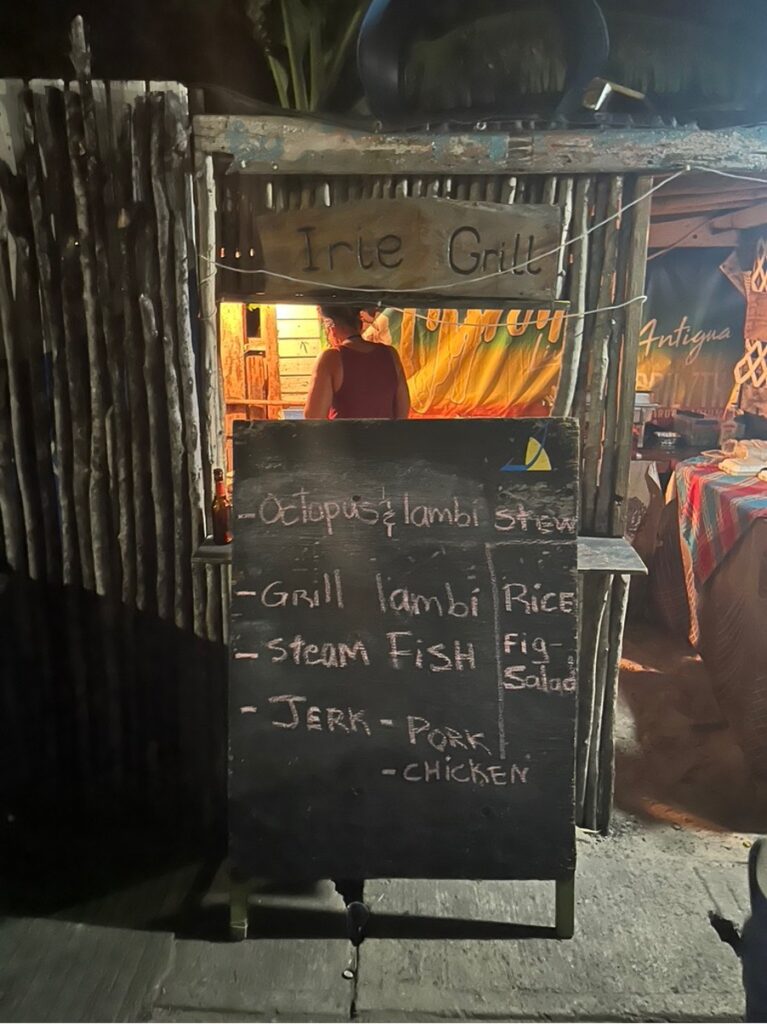 Irie Grill
Antigua
-Octopus & lambi stew
-GRill lambi
RICE
-SteaM FiSH
Fig-
Salad
- JERK - PORK
-CHICKEN